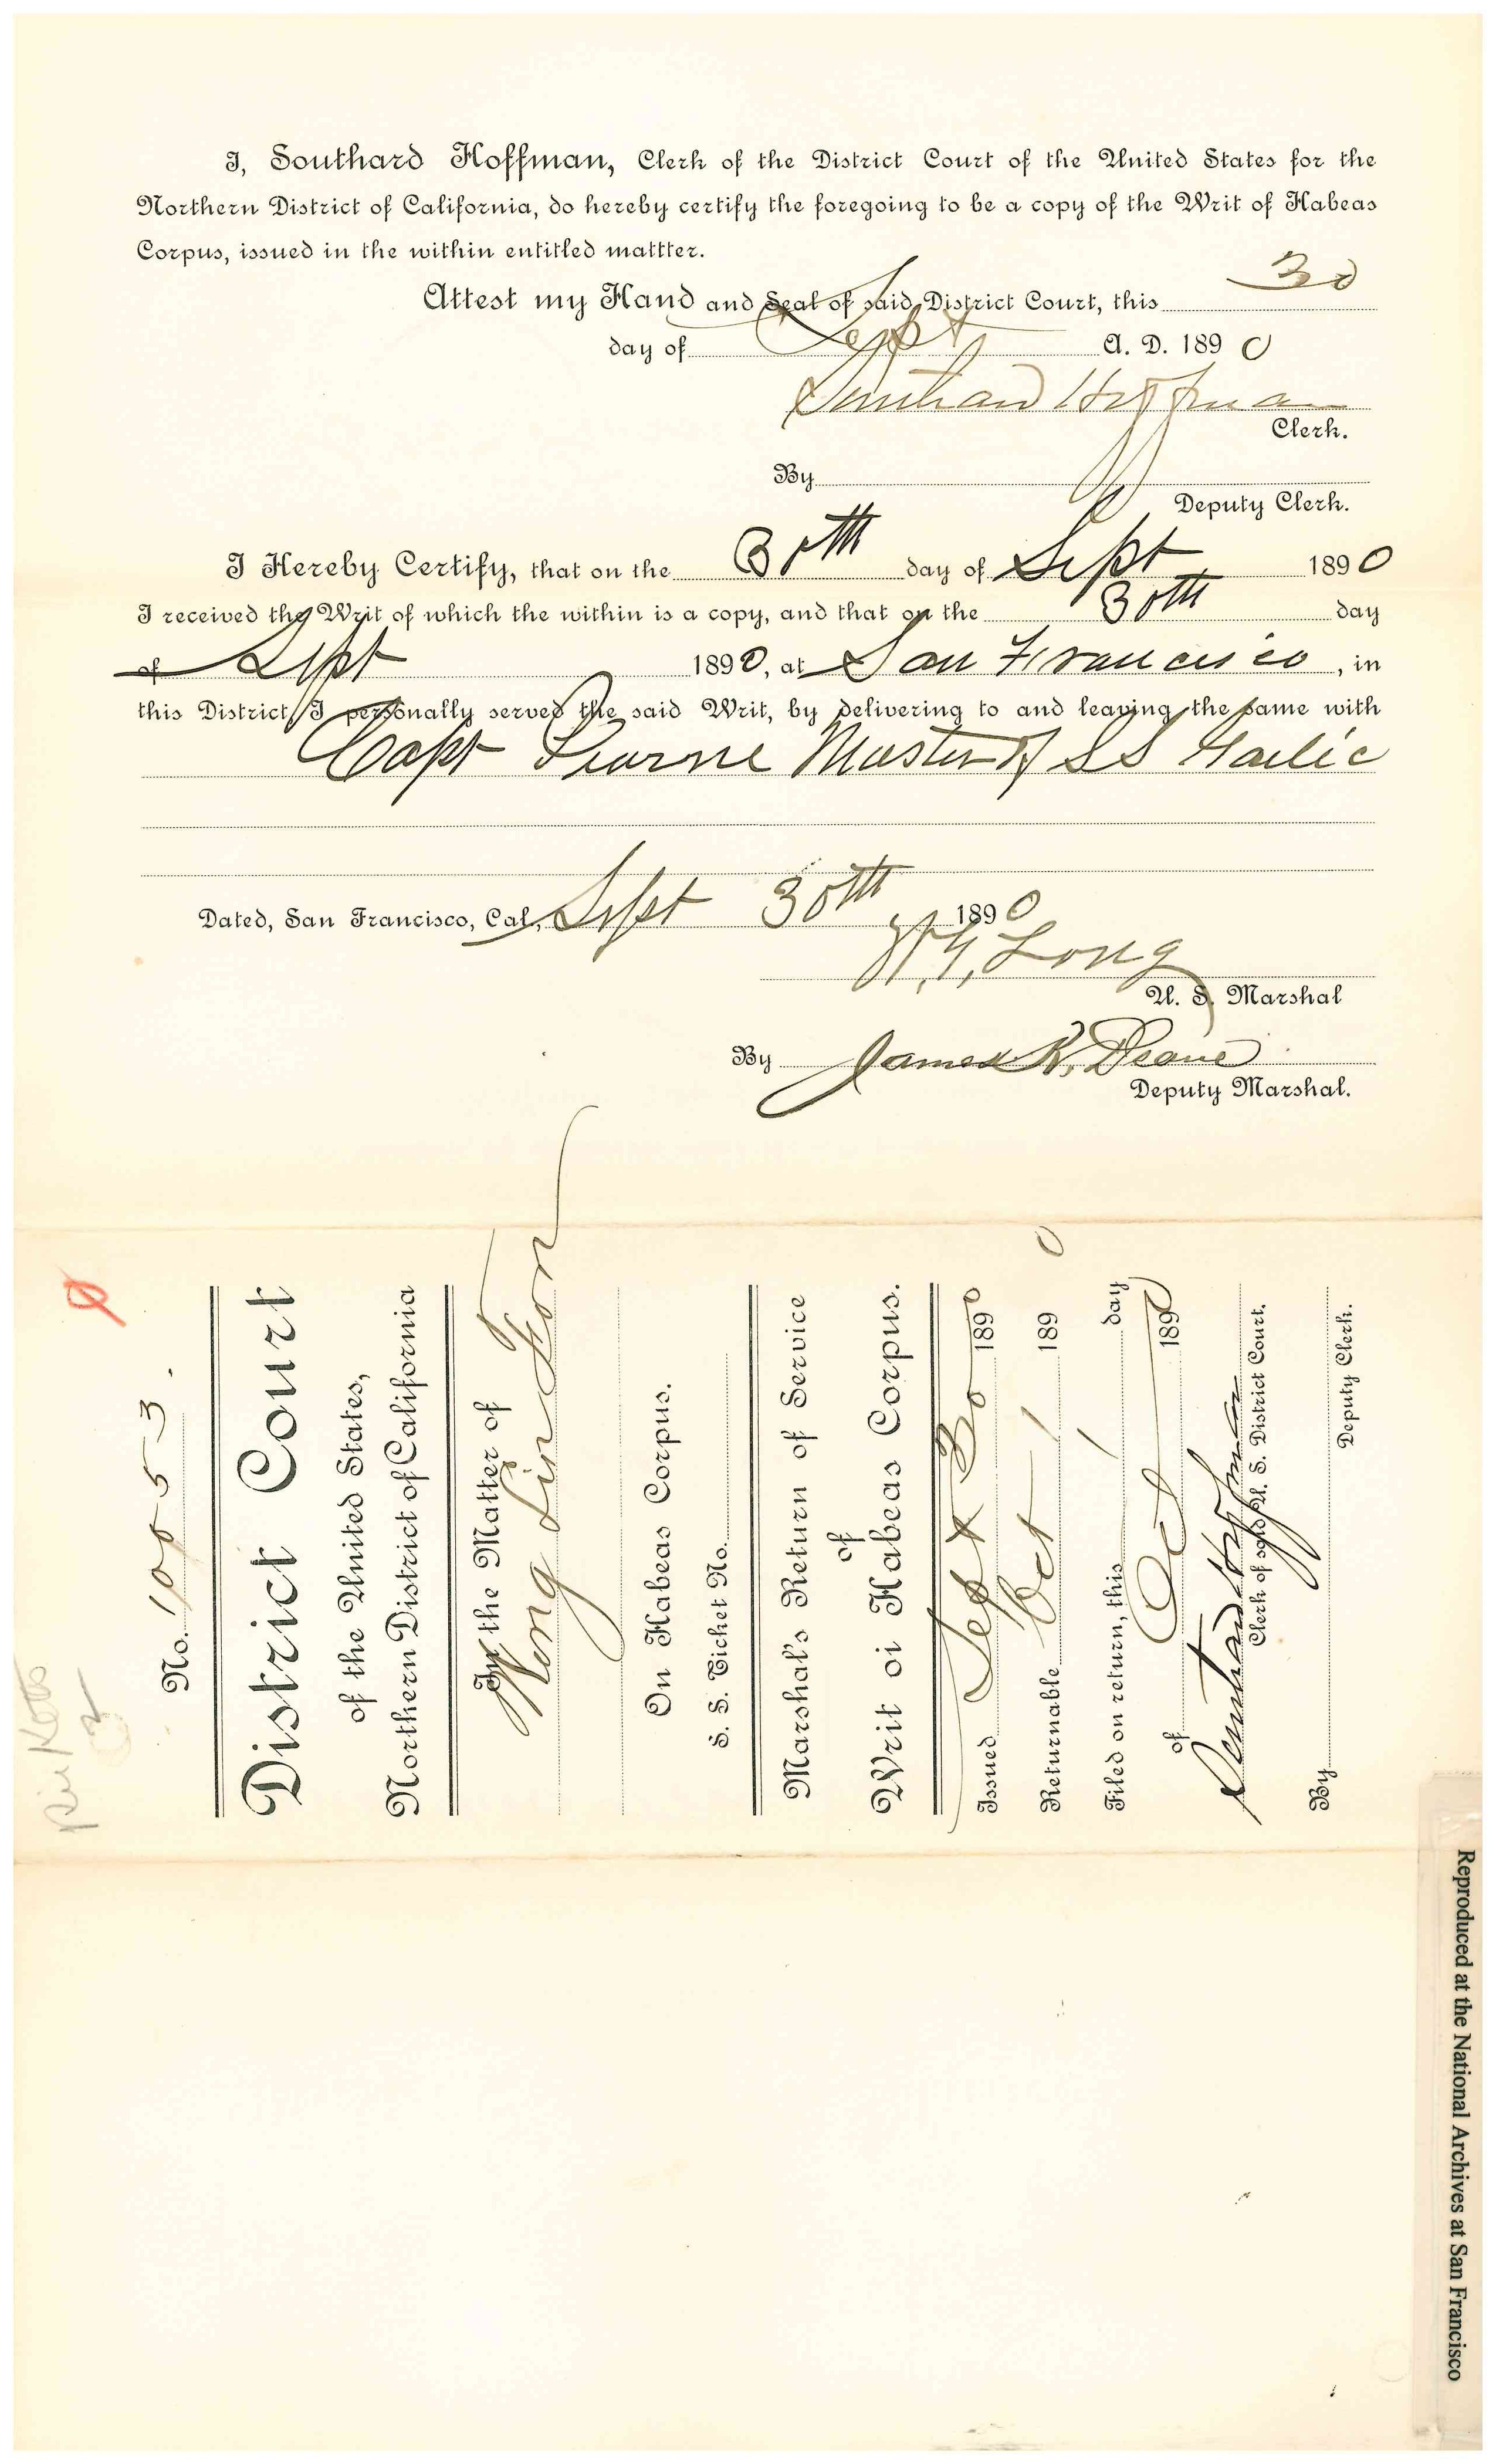 I, Southard Hoffman, Clerk of the District Court of the United States for the
Northern District of California, do hereby certify the foregoing to be a copy of the Writ of Habeas
Corpus, issued in the within entitled mattter.
Attest my Hand and Seal of said District Court, this 30
day of Sept A. D. 1890
Southard Hoffman
Clerk.
By
Deputy Clerk.
I Hereby Certify, that on the 30th day of Sept 1890
I received the Writ of which the within is a copy, and that on the 30th day
of Sept 1890, at San Francisco, in
this District, I personally served the said Writ, by delivering to and leaving the same with
Capt Pearne Master of SS Gaelic
Dated, San Francisco, Cal., Sept 30th 1890
W. G. Long
U. S. Marshal
By James K. Deane
Deputy Marshal.
No. 10053.
District Court
of the United States,
Northern District of California
In the Matter of
Wong
On Habeas Corpus.
S. S. Ticket No.
Marshal's Return of Service
of
Writ oi Habeas Corpus.
Issued Sept 30 1890
Returnable Oct 1 1890
Filed on return, this 1 day
of Oct 1890
Southard Hoffman
Clerk of said U. S. District Court.
By
Deputy Clerk.
Reproduced at the National Archives at San Francisco